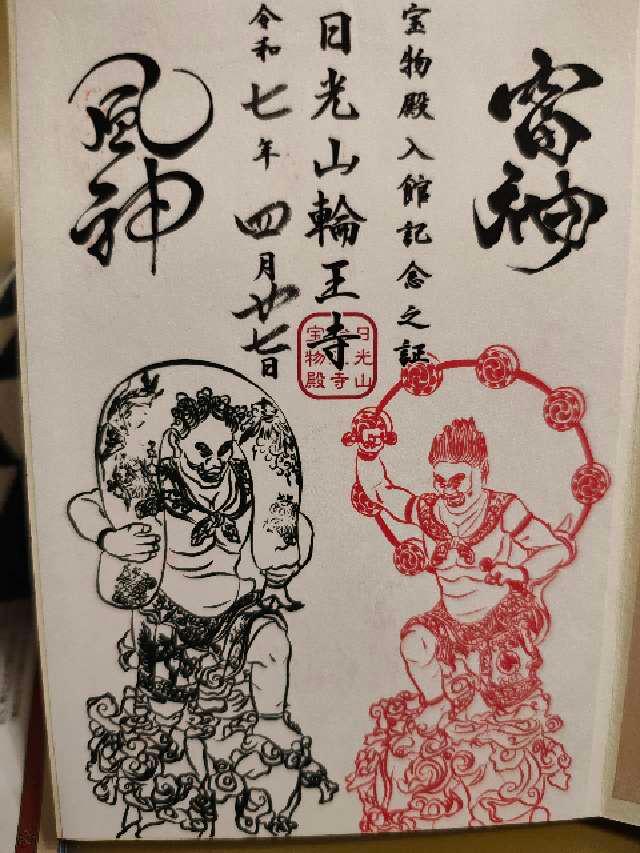 雷神
宝物殿入館記念之証
日光山輪王寺
令和七年四月廿七日
風神
日光山
王寺
宝物殿